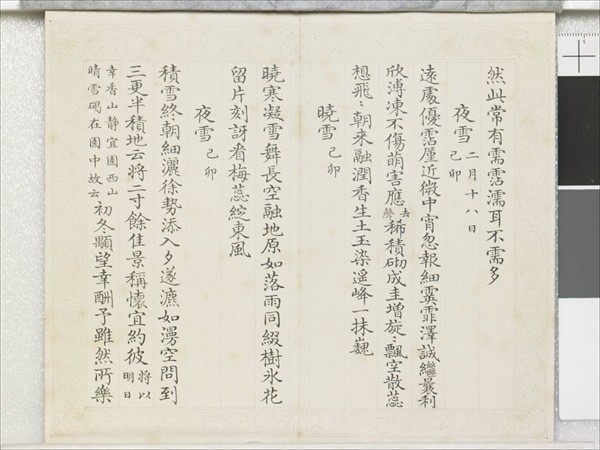 然此常有需霑濡耳不需多
夜雪二月十八日己卯
遠處優霑厪近微中宵忽報細霙霏澤誠繼最利
欣溥凍不傷萌害應去聲稀積砌成圭增旋〻飄空散蕊
想飛〻朝来融潤香生土玉染遥峰一抹巍
曉雪己卯
曉寒凝雪舞長空融地原如落雨同綴樹氷花
留片刻訝看梅蕊綻東風
夜雪己卯
積雪終朝細灑徐勢添入夕遂漉如漫空問到
三更半積地云將二寸餘佳景稱懷宜約彼將以明日
幸香山静宜園西山晴雪碣在園中故云初冬顒望幸酬予雖然所樂